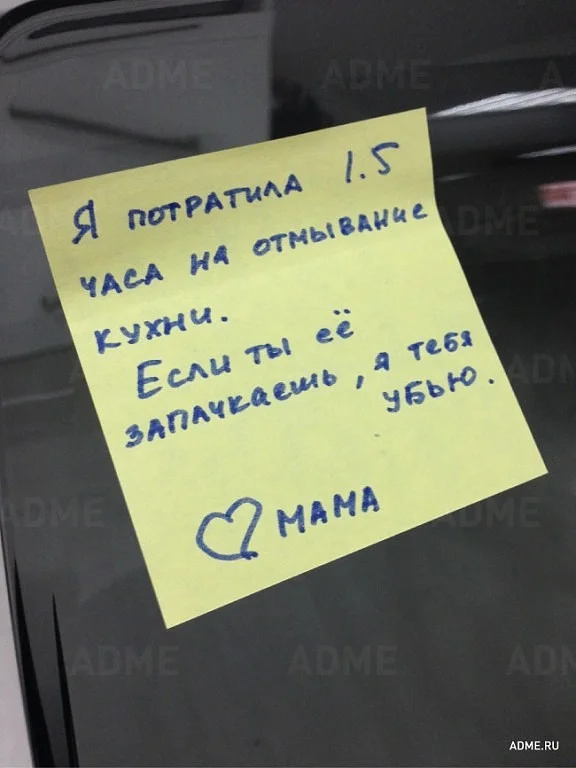 Я ПОТРАТИЛА 1.5
ЧАСА НА ОТМЫВАНИЕ
КУХНИ.
ЕСЛИ ТЫ ЕЁ
ЗАПАЧКАЕШЬ, Я ТЕБЯ
УБЬЮ.
♡ МАМА
ADME
ADME
ADME
ADME
ADME
ADME
ADME
ADME
ADME
ADME.RU